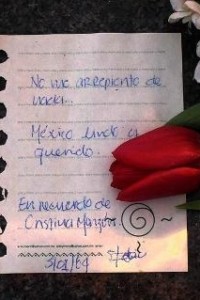 No me arrepiento de
nada..
México lindo y
querido.
En recuerdo de
Cristina